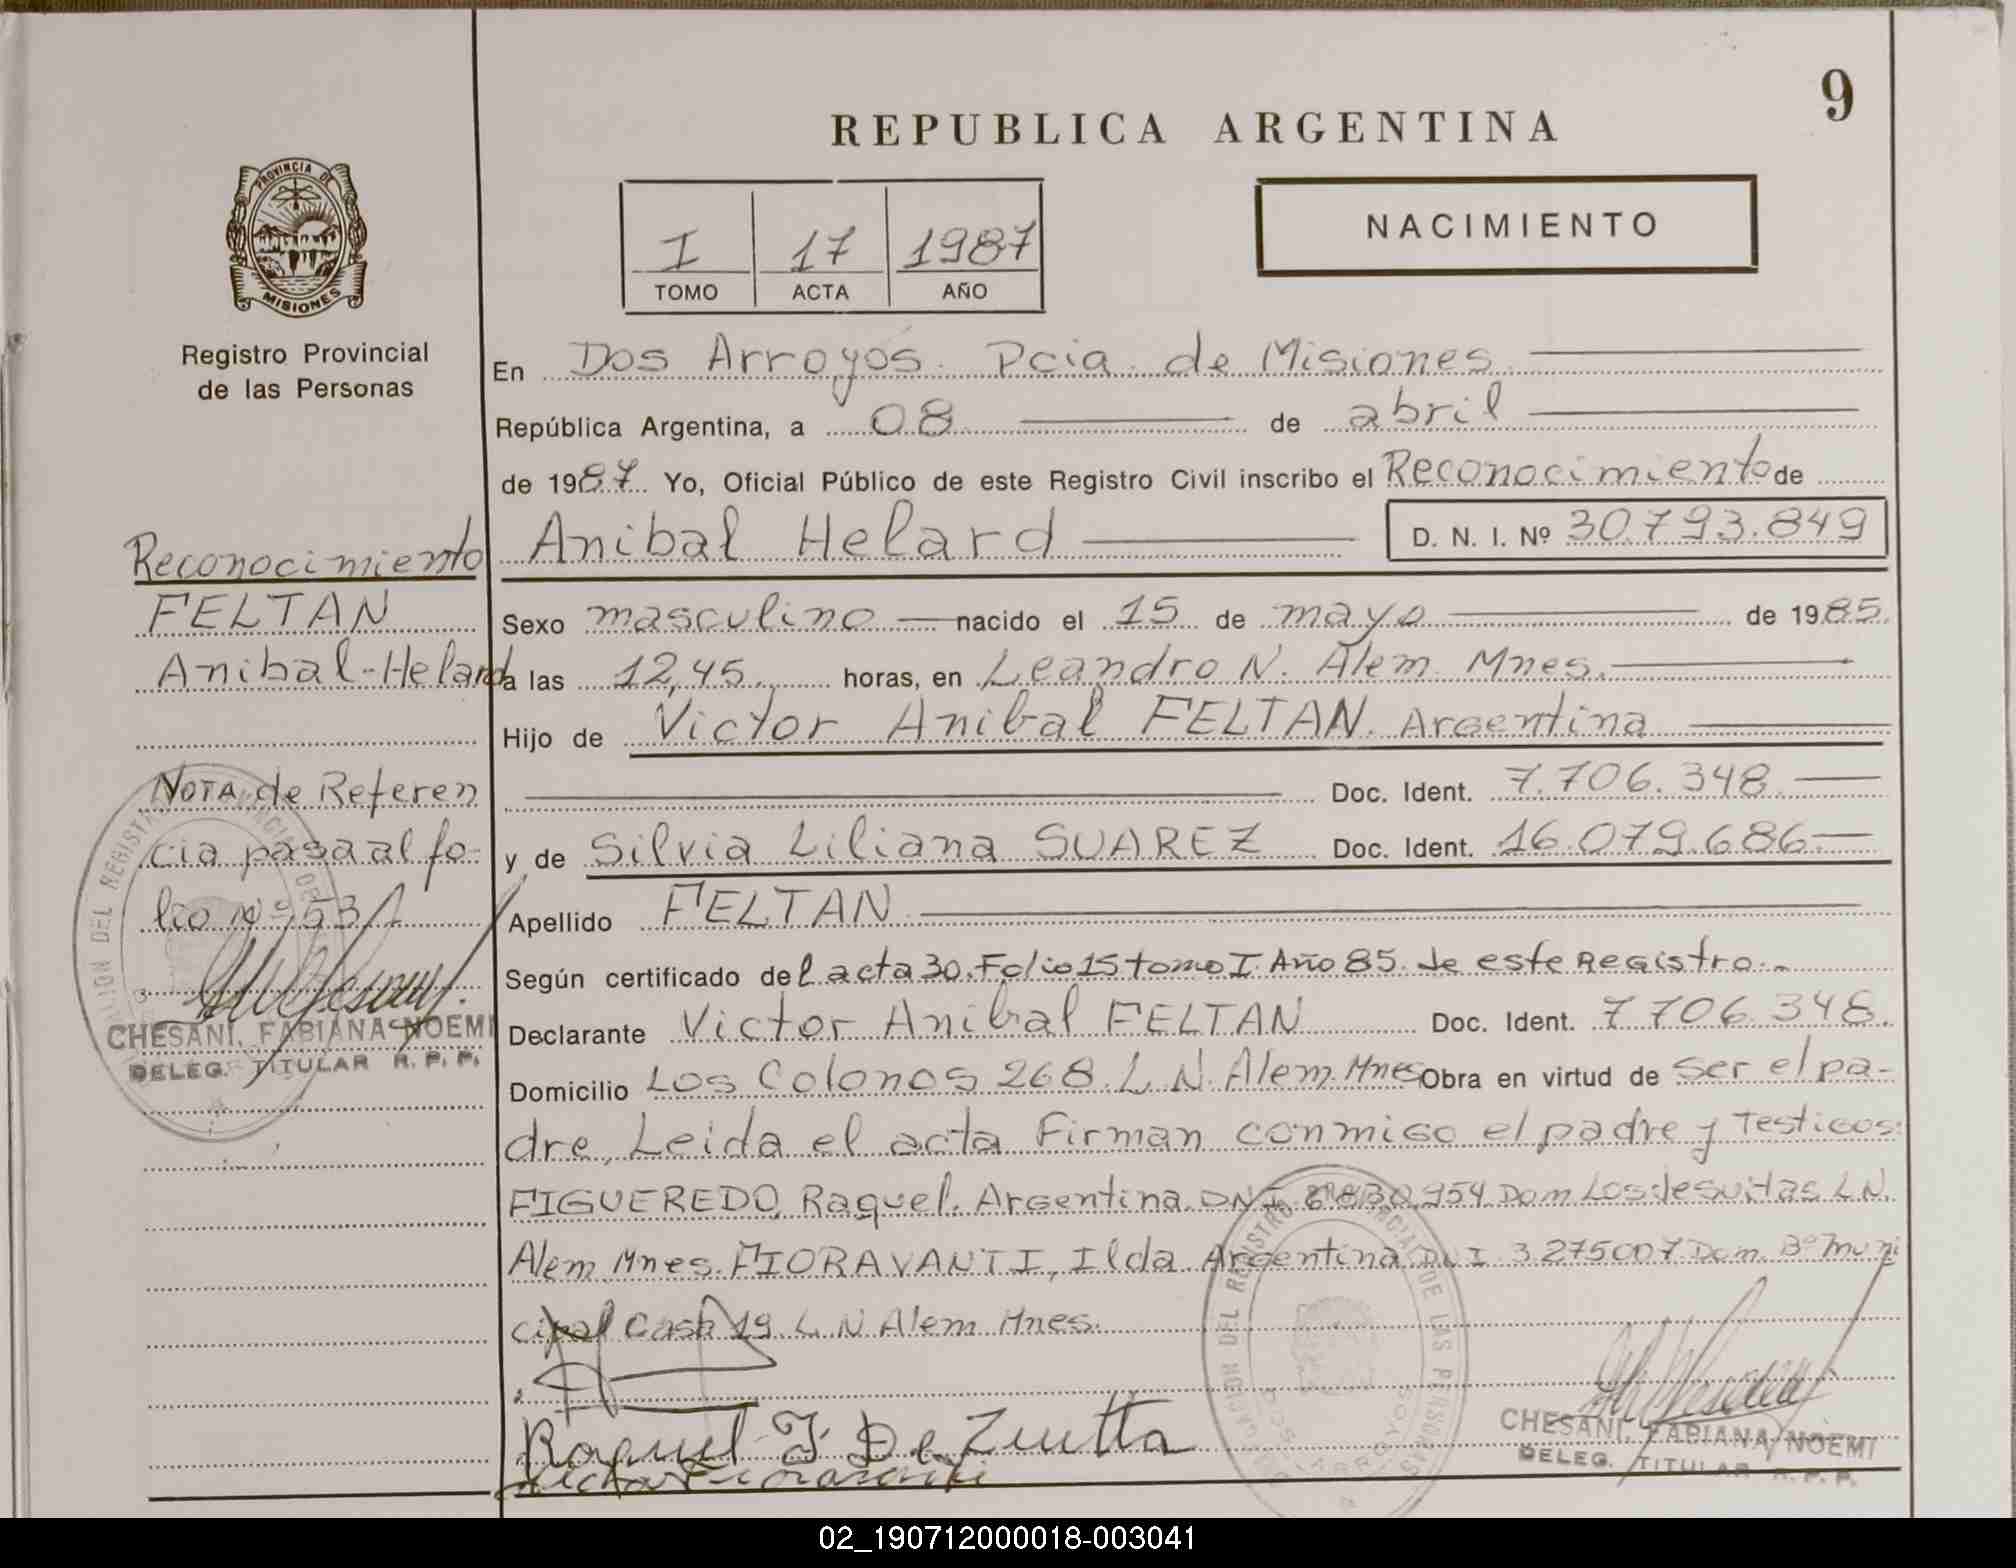 9
REPUBLICA ARGENTINA
PROVINCIA DE
MISIONES
Registro Provincial
de las Personas
I 17 1987
TOMO ACTA AÑO
NACIMIENTO
En Dos Arroyos. Pcia. de Misiones
República Argentina, a 08 de abril
de 1987. Yo, Oficial Público de este Registro Civil inscribo el Reconocimiento de
Anibal Helard D. N. I. Nº 30.793.849
Reconocimiento
FELTAN
Anibal-Helard
Sexo masculino nacido el 15 de mayo de 1985.
a las 12,45. horas, en Leandro N. Alem. Mnes.
Hijo de Victor Anibal FELTAN. Argentina
Doc. Ident. 7.706.348
y de Silvia Liliana SUAREZ Doc. Ident. 16.079.686
Nota de Referen
cia pasa al fo-
lio Nº 53
CHESANI, FABIANA NOEMI
DELEG. TITULAR R. P. P.
Apellido FELTAN
Según certificado del acta 30. Folio 15 tomo I. Año 85. de este Registro.-
Declarante Victor Anibal FELTAN Doc. Ident. 7.706.348.
Domicilio Los Colonos 268. L. N. Alem. Mnes Obra en virtud de ser el pa-
dre, Leida el acta Firman conmigo el padre y Testigos:
FIGUEREDO, Raquel. Argentina. DNI. 954. Dom. Los Jesuitas L.N.
Alem. Mnes. FIORAVANTI, Ilda. Argentina. DNI. 3.275007. Dom. Bº Muni
cipal Casa 19. L. N Alem. Mnes.
Raquel F. De Ziutta
Fioravanti
CHESANI, FABIANA NOEMI
DELEG. TITULAR R. P. P.
02_190712000018-003041